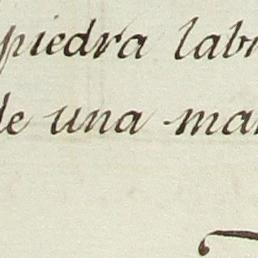 piedra lab
de una ma